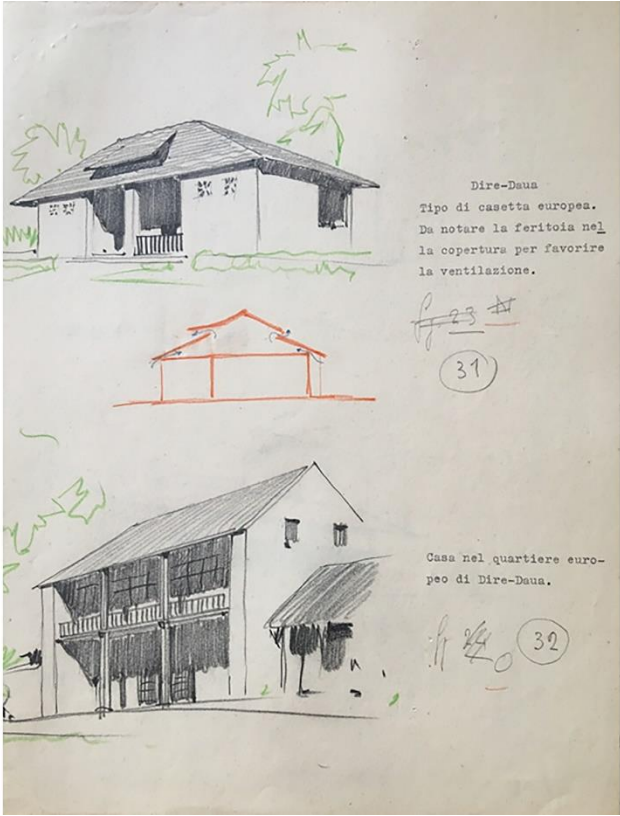 Dire-Daua
Tipo di casetta europea.
Da notare la feritoia nel
la copertura per favorire
la ventilazione.
fg. 23
31
Casa nel quartiere euro-
peo di Dire-Daua.
fg
32